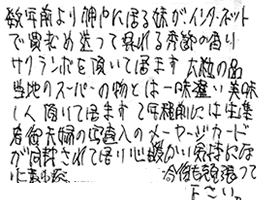 数年前より神戸に居る妹がインターネット
で買求め送って呉れる季節の香り
サクランボを頂いて居ます 大粒の品
当地のスーパーの物とは一味違い美味
しく頂いて居ます て年種前には生産
者御夫婦の写真入のメッセージカード
が同封されて居り心暖かい気持にな
に
今後も頑張って
下さい。